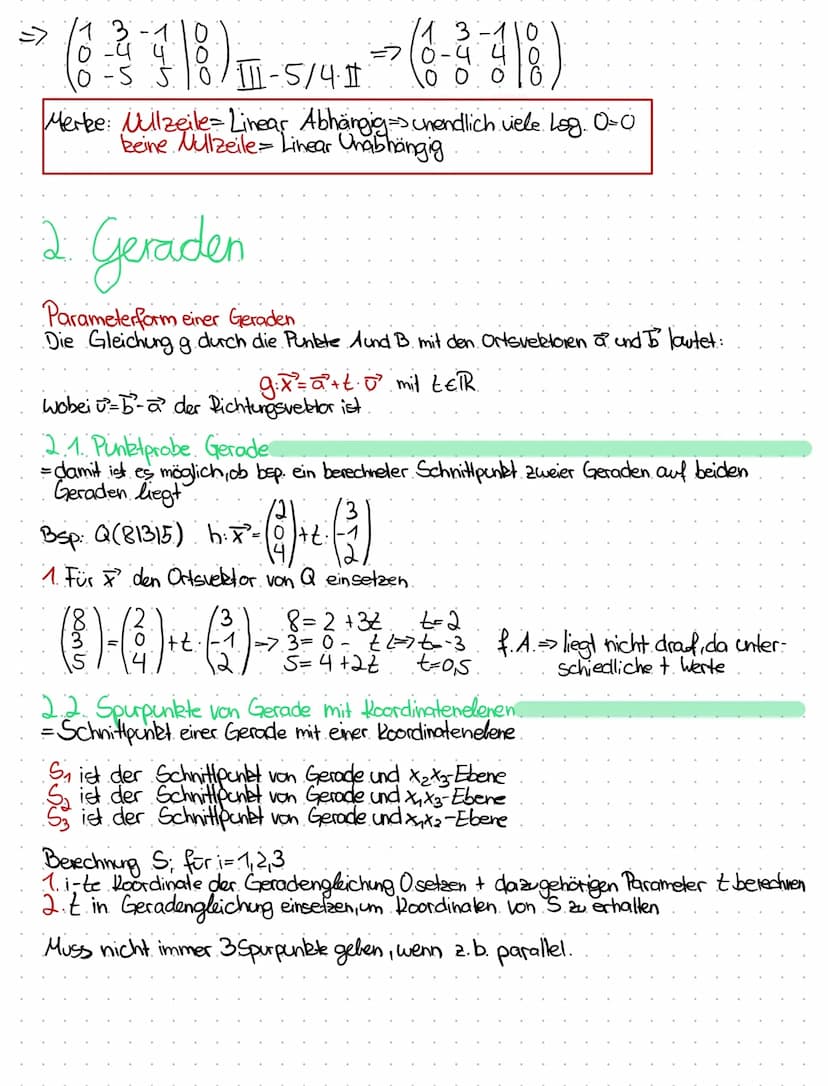 => (1 3 -1 | 0) => (1 3 -1 | 0)
(0 -4 4 | 0) (0 -4 4 | 0)
(0 -5 5 | 0) III - 5/4·II (0 0 0 | 0)
Merke: Nullzeile = Linear Abhängig => unendlich viele Lsg. 0=0
keine Nullzeile = Linear Unabhängig
2. Geraden
Parameterform einer Geraden
Die Gleichung g durch die Punkte A und B mit den Ortsvektoren a⃗ und b⃗ lautet:
g: x⃗ = a⃗ + t · v⃗ mit t ∈ ℝ
wobei v⃗ = b⃗ - a⃗ der Richtungsvektor ist
2.1. Punktprobe Gerade
= damit ist es möglich, ob bsp. ein berechneter Schnittpunkt zweier Geraden auf beiden
Geraden liegt
Bsp: Q(8|3|5) h: x⃗ = (2 0 4) + t · (3 -1 2)
1. Für x⃗ den Ortsvektor von Q einsetzen
(8) = (2) + t · (3) => 8 = 2 + 3t t=2
(3) (0) (-1) 3 = 0 - t <=> t=-3 f.A. => liegt nicht drauf, da unter-
(5) (4) (2) 5 = 4 + 2t t=0,5 schiedliche t Werte
2.2. Spurpunkte von Gerade mit Koordinatenebenen
= Schnittpunkt einer Gerade mit einer Koordinatenebene
S₁ ist der Schnittpunkt von Gerade und x₂x₃-Ebene
S₂ ist der Schnittpunkt von Gerade und x₁x₃-Ebene
S₃ ist der Schnittpunkt von Gerade und x₁x₂-Ebene
Berechnung Sᵢ für i=1,2,3
1. i-te Koordinate der Geradengleichung 0 setzen + dazugehörigen Parameter t berechnen
2. t in Geradengleichung einsetzen, um Koordinaten von S zu erhalten
Muss nicht immer 3 Spurpunkte geben, wenn z.b. parallel.